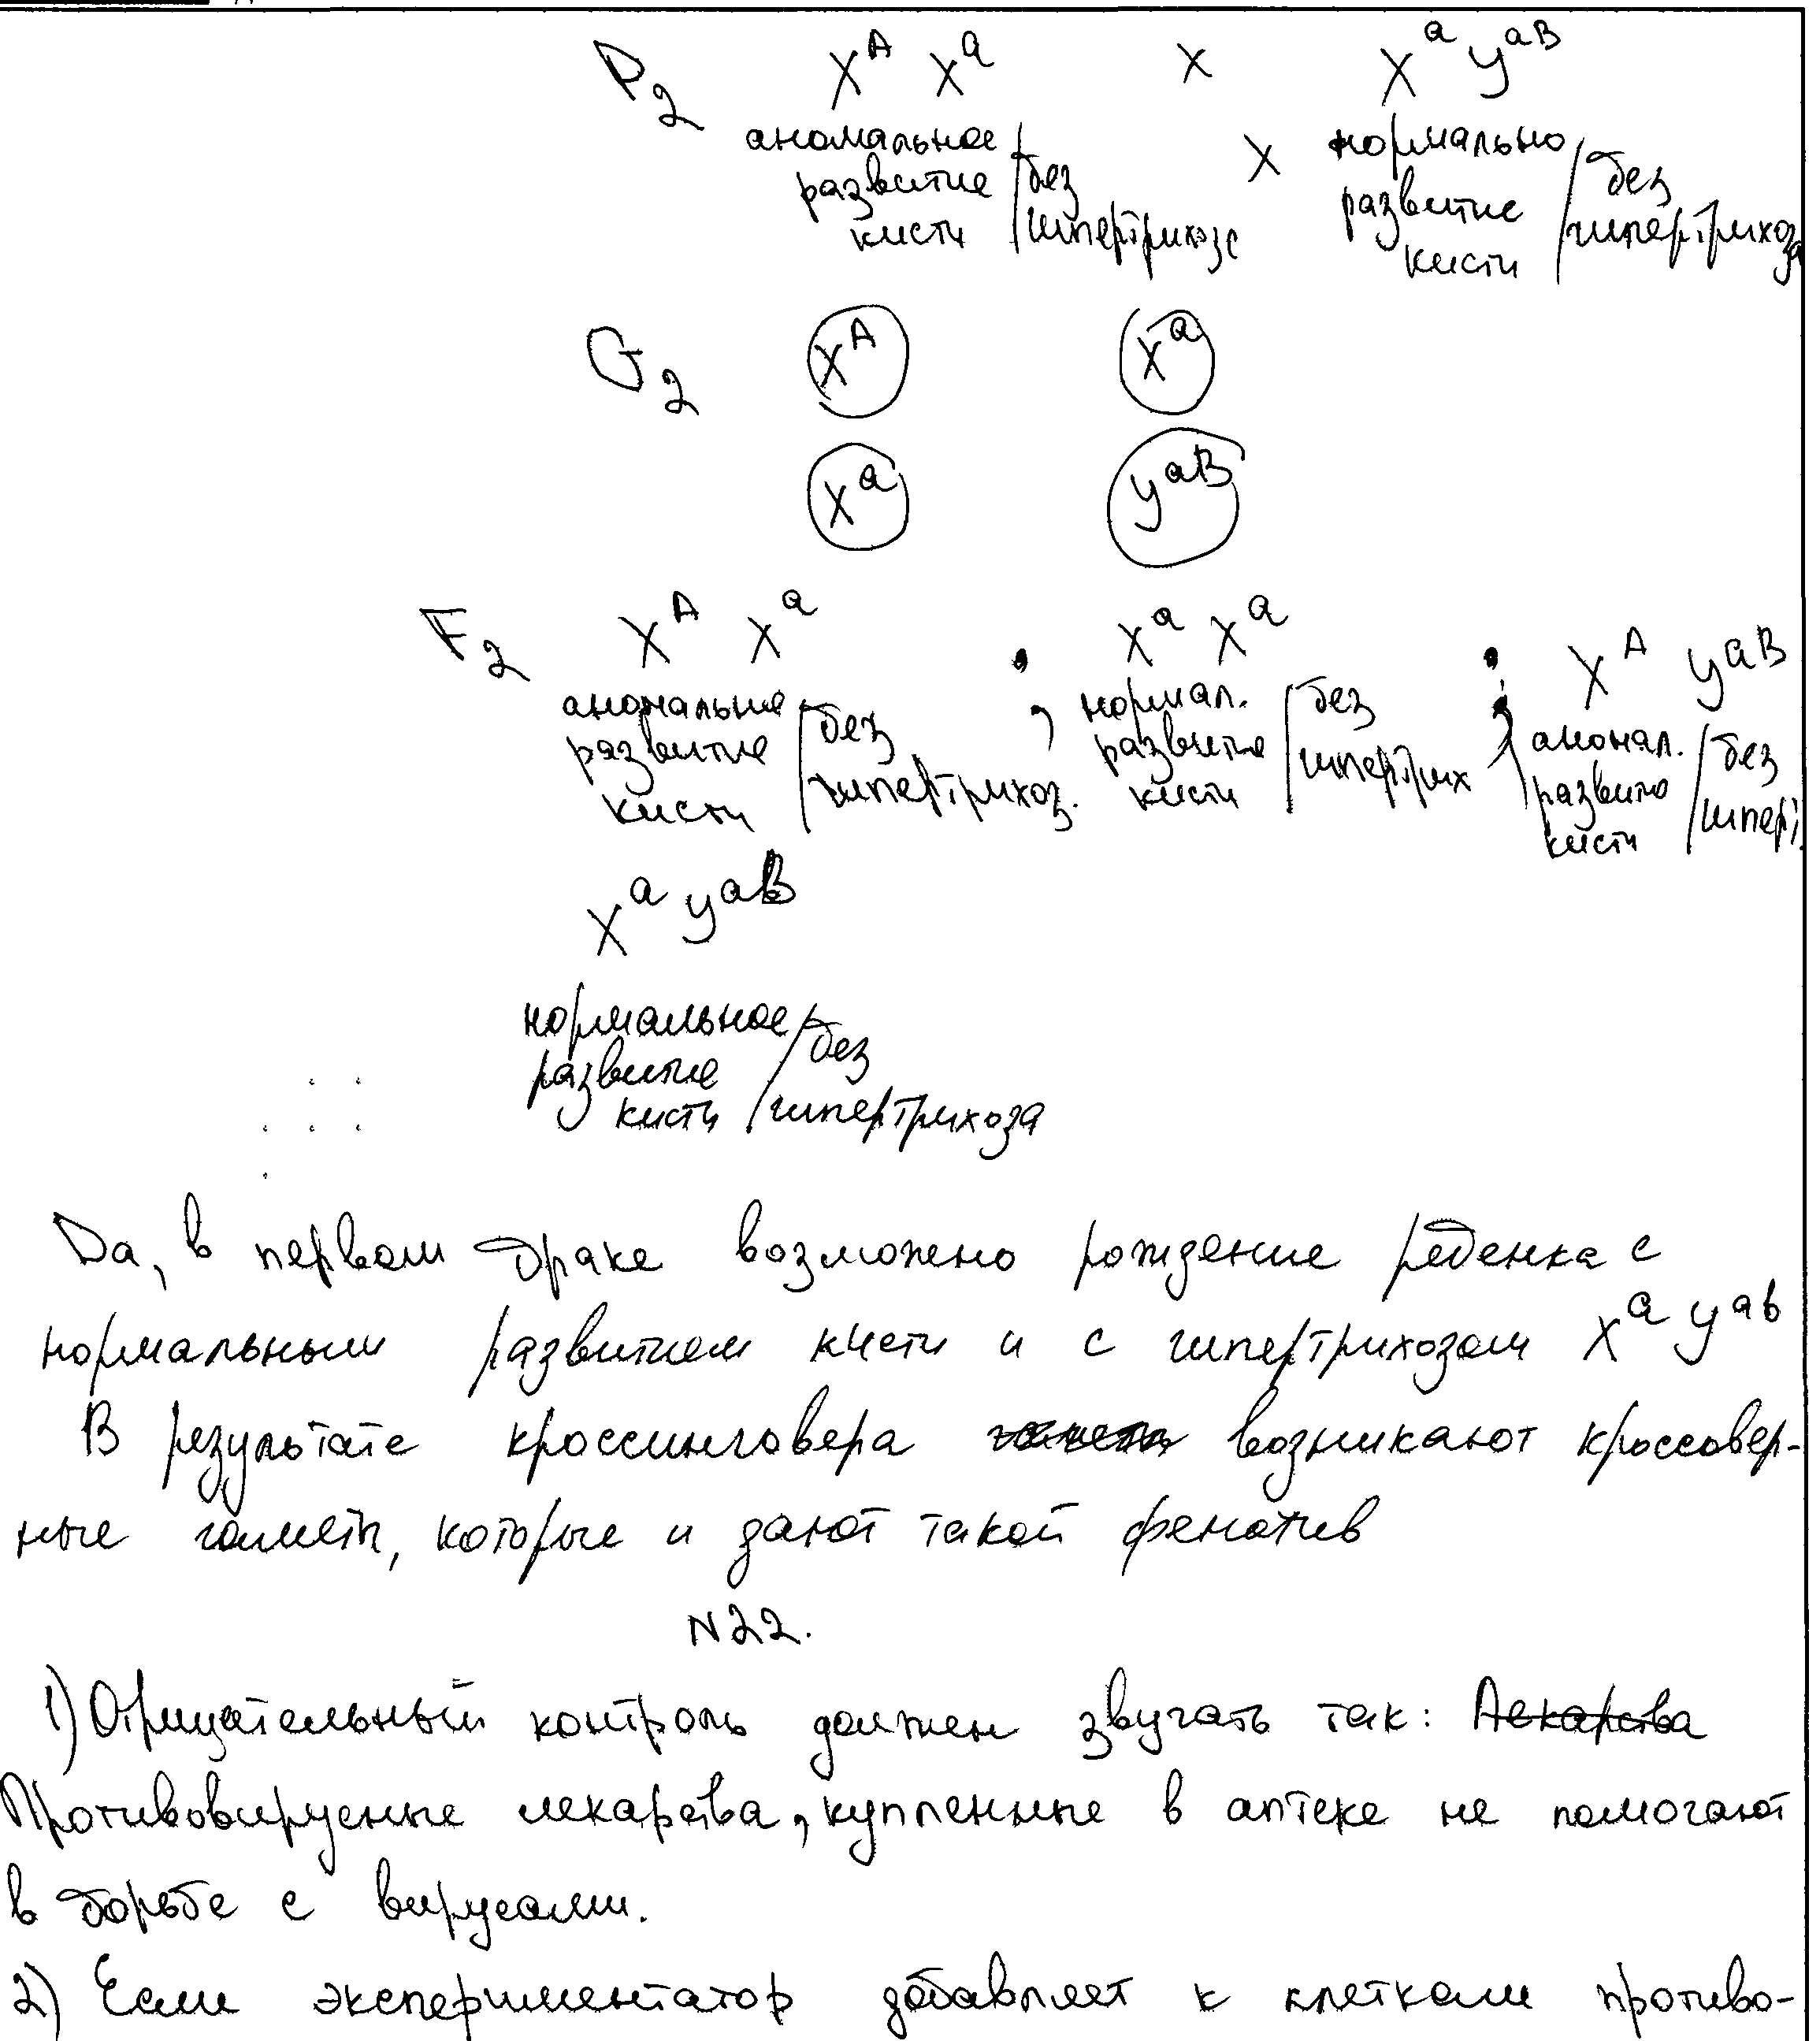 P₂ X^A X^a x X^a y^aB
аномальное развитие кисти / без гипертрихоза x нормально развитие кисти / без гипертрихоза
G₂ X^A X^a
X^a y^aB
F₂ X^A X^a ; X^a X^a ; X^A y^aB
аномальние развитие кисти / без гипертрихоз. нормал. развитие кисти / без гипертрих аномал. развито кисти / без гиперт.
X^a y^aB
нормальное развитие кисти / без гипертрихоза
Да, в первом браке возможено рождение ребенка с
нормальным развитием кисти и с гипертрихозом X^a y^ab
В результате кроссинговера возникают кроссовер-
ные гаметы, которые и дают такой фенотив
N22.
1) Отрицательный контроль должен звучать так: Лекарства
Противовирусные лекарства, купленные в аптеке не помогают
в борьбе с вирусами.
2) Если экспериментатор добавляет к клеткам противо-